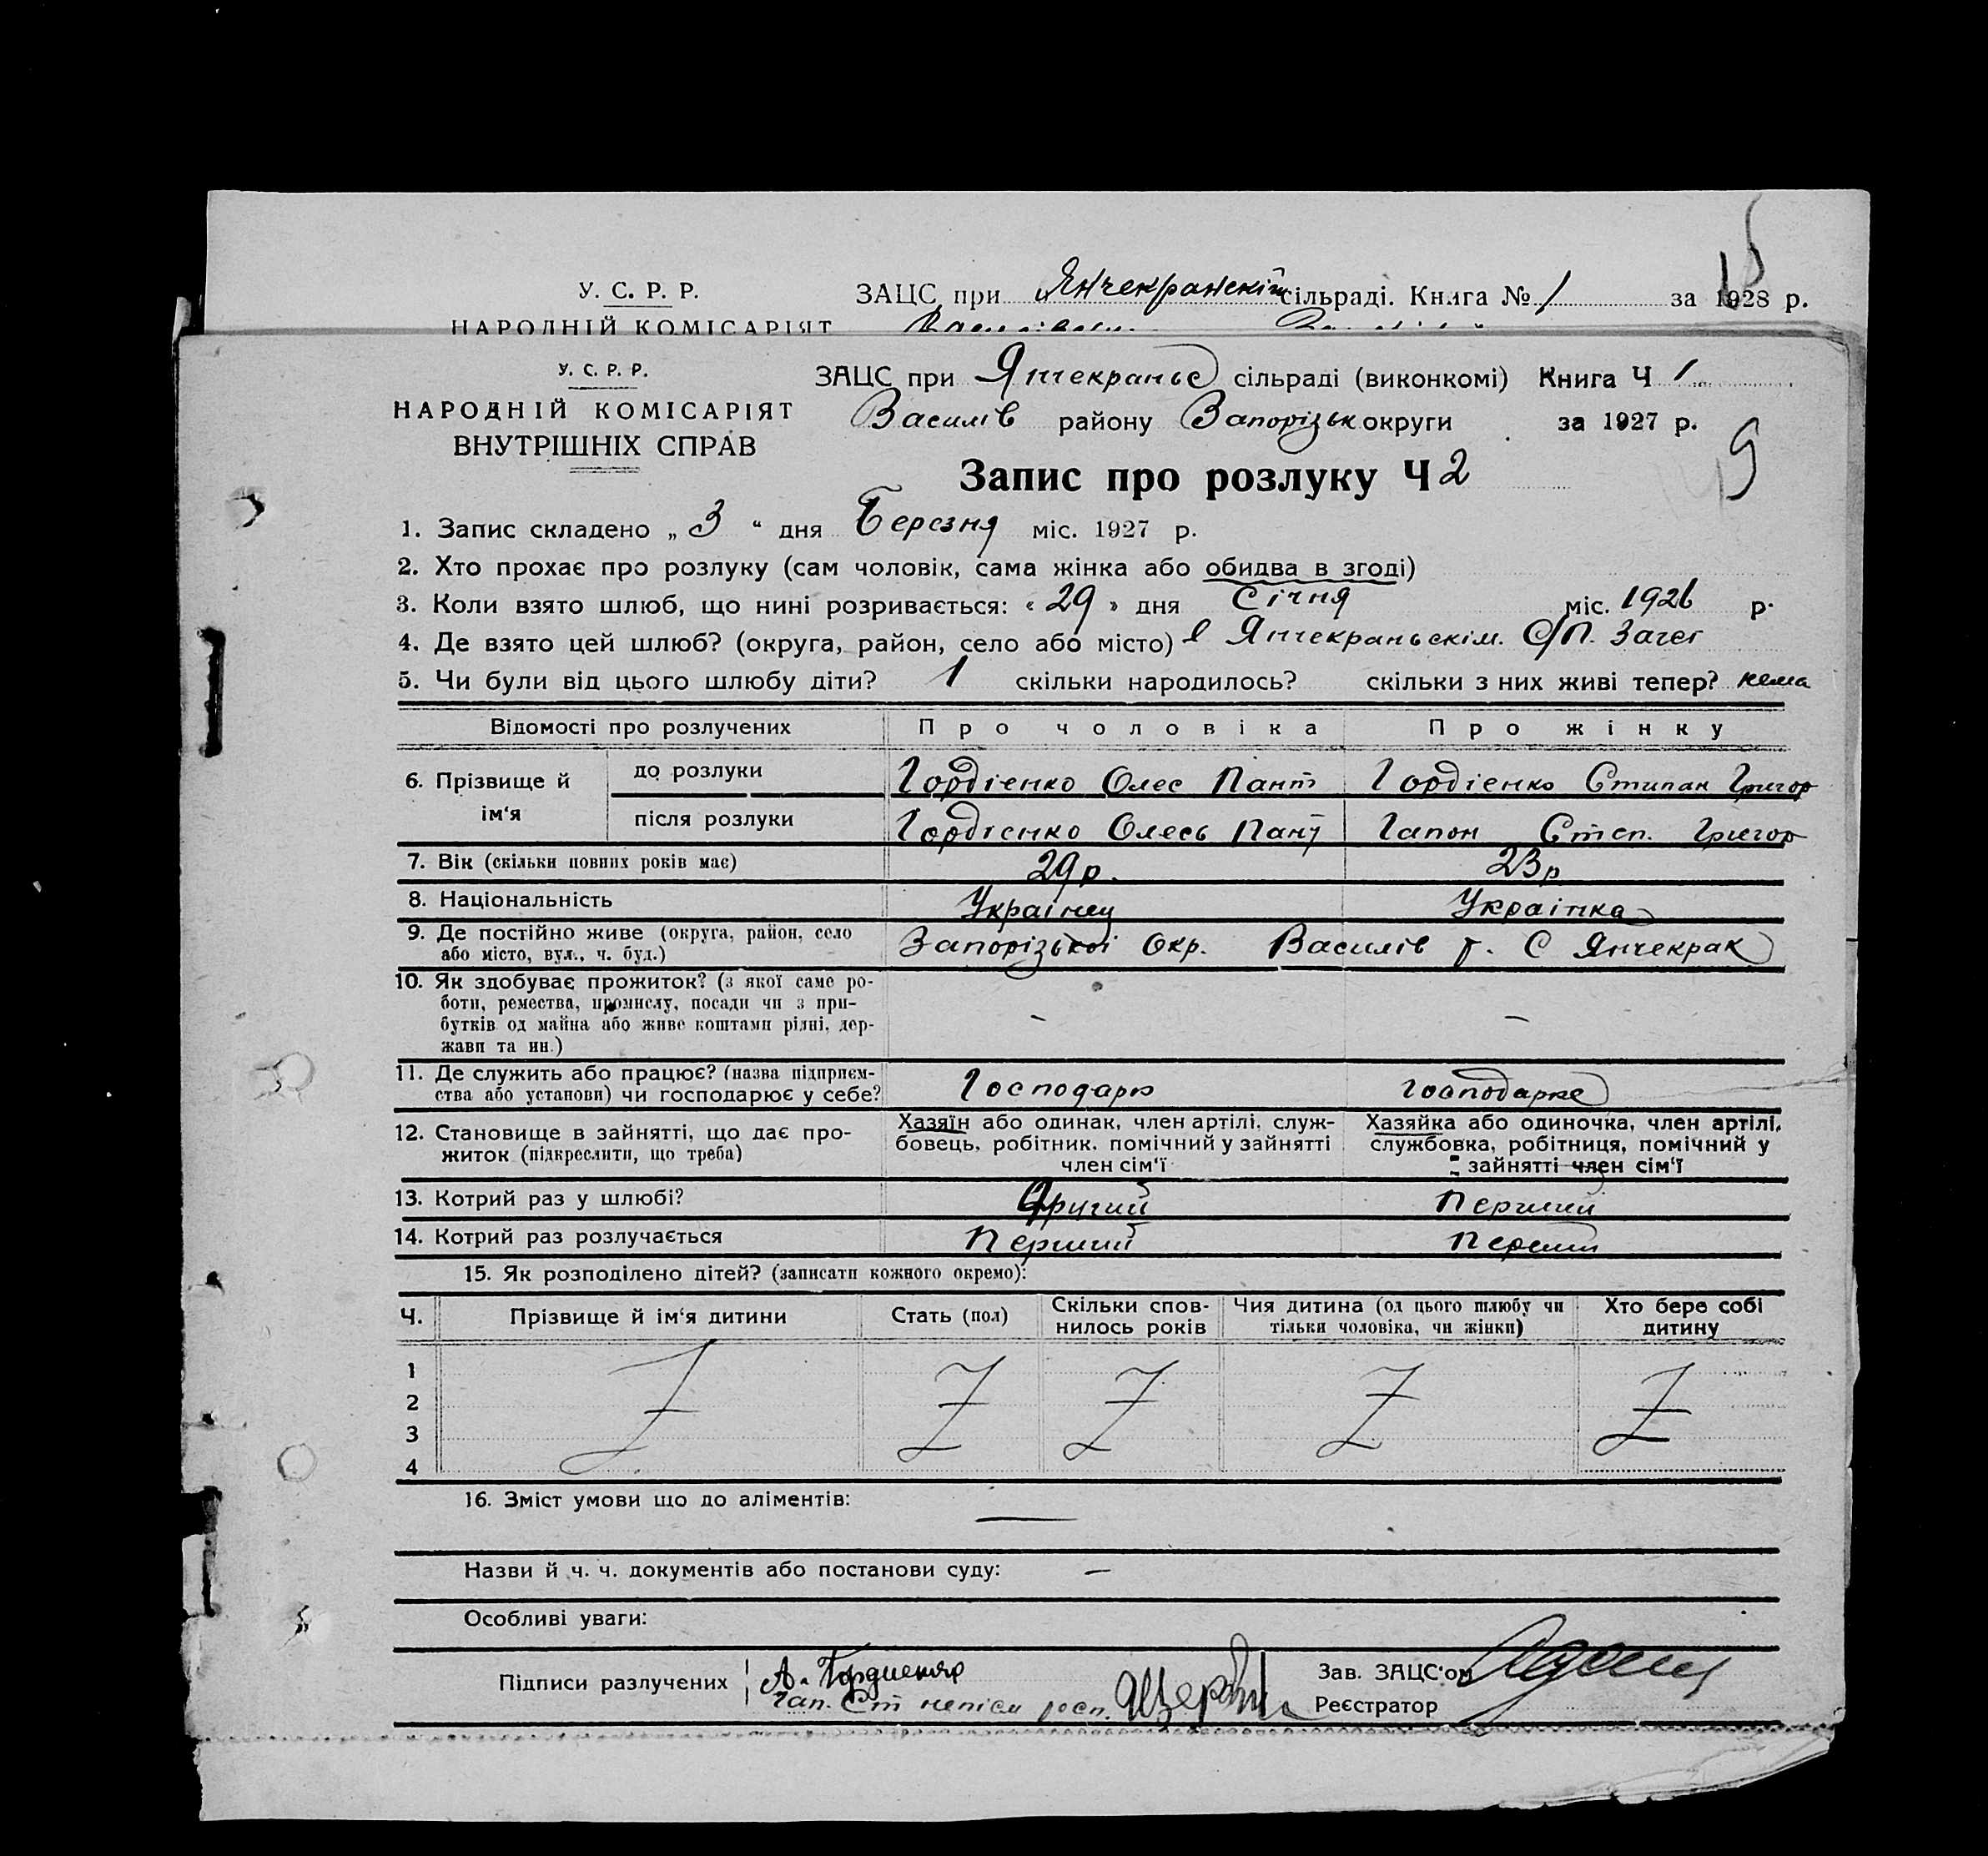 У. С. Р. Р. ЗАЦС при Янчекранскій сільраді. Книга № 1 за 1928 р.
НАРОДНІЙ КОМІСАРІЯТ
У. С. Р. Р. ЗАЦС при Янчекраньс сільраді (виконкомі) Книга Ч 1
НАРОДНІЙ КОМІСАРІЯТ Василів району Запорізьк округи за 1927 р.
ВНУТРІШНІХ СПРАВ
9
Запис про розлуку Ч 2
1. Запис складено „ 3 “ дня Березня міс. 1927 р.
2. Хто прохає про розлуку (сам чоловік, сама жінка або обидва в згоді)
3. Коли взято шлюб, що нині розривається: « 29 » дня Січня міс. 1926 р.
4. Де взято цей шлюб? (округа, район, село або місто) в Янчекраньскім. С/П. Загсі
5. Чи були від цього шлюбу діти? 1 скільки народилось? скільки з них живі тепер? нема
Відомості про розлучених Про чоловіка Про жінку
6. Прізвище й ім‘я до розлуки Гордіенко Олес Пант Гордіенко Степан Григор
після розлуки Гордіенко Олесь Пант Гапон Степ. Григор
7. Вік (скільки повних років має) 29 р. 23 р
8. Національність Украінец Украінка
9. Де постійно живе (округа, район, село
або місто, вул., ч. буд.) Запорізькоі Окр. Василів р. С Янчекрак
10. Як здобуває прожиток? (з якої саме ро-
боти, ремества, промислу, посади чи з при-
бутків од майна або живе коштами рідні, дер-
жави та ин.) – –
11. Де служить або працює? (назва підприєм-
ства або установи) чи господарює у себе? Господарю господарке
12. Становище в зайнятті, що дає про-
житок (підкреслити, що треба)
Хазяїн або одинак, член артілі, служ-
бовець, робітник, помічний у зайнятті
член сім‘ї
Хазяйка або одиночка, член артілі,
службовка, робітниця, помічний у
зайнятті член сім‘ї
13. Котрий раз у шлюбі? Другий Перший
14. Котрий раз розлучається Перший Перший
15. Як розподілено дітей? (записати кожного окремо):
Ч. Прізвище й ім‘я дитини Стать (пол) Скільки спов-
нилось років Чия дитина (од цього шлюбу чи
тільки чоловіка, чи жінки) Хто бере собі
дитину
1
2
3
4
16. Зміст умови що до аліментів: —
Назви й ч. ч. документів або постанови суду: —
Особливі уваги:
Підписи разлучених А. Гордиенко Зав. ЗАЦС‘ом
Гап. Ст непісм росп. Реєстратор